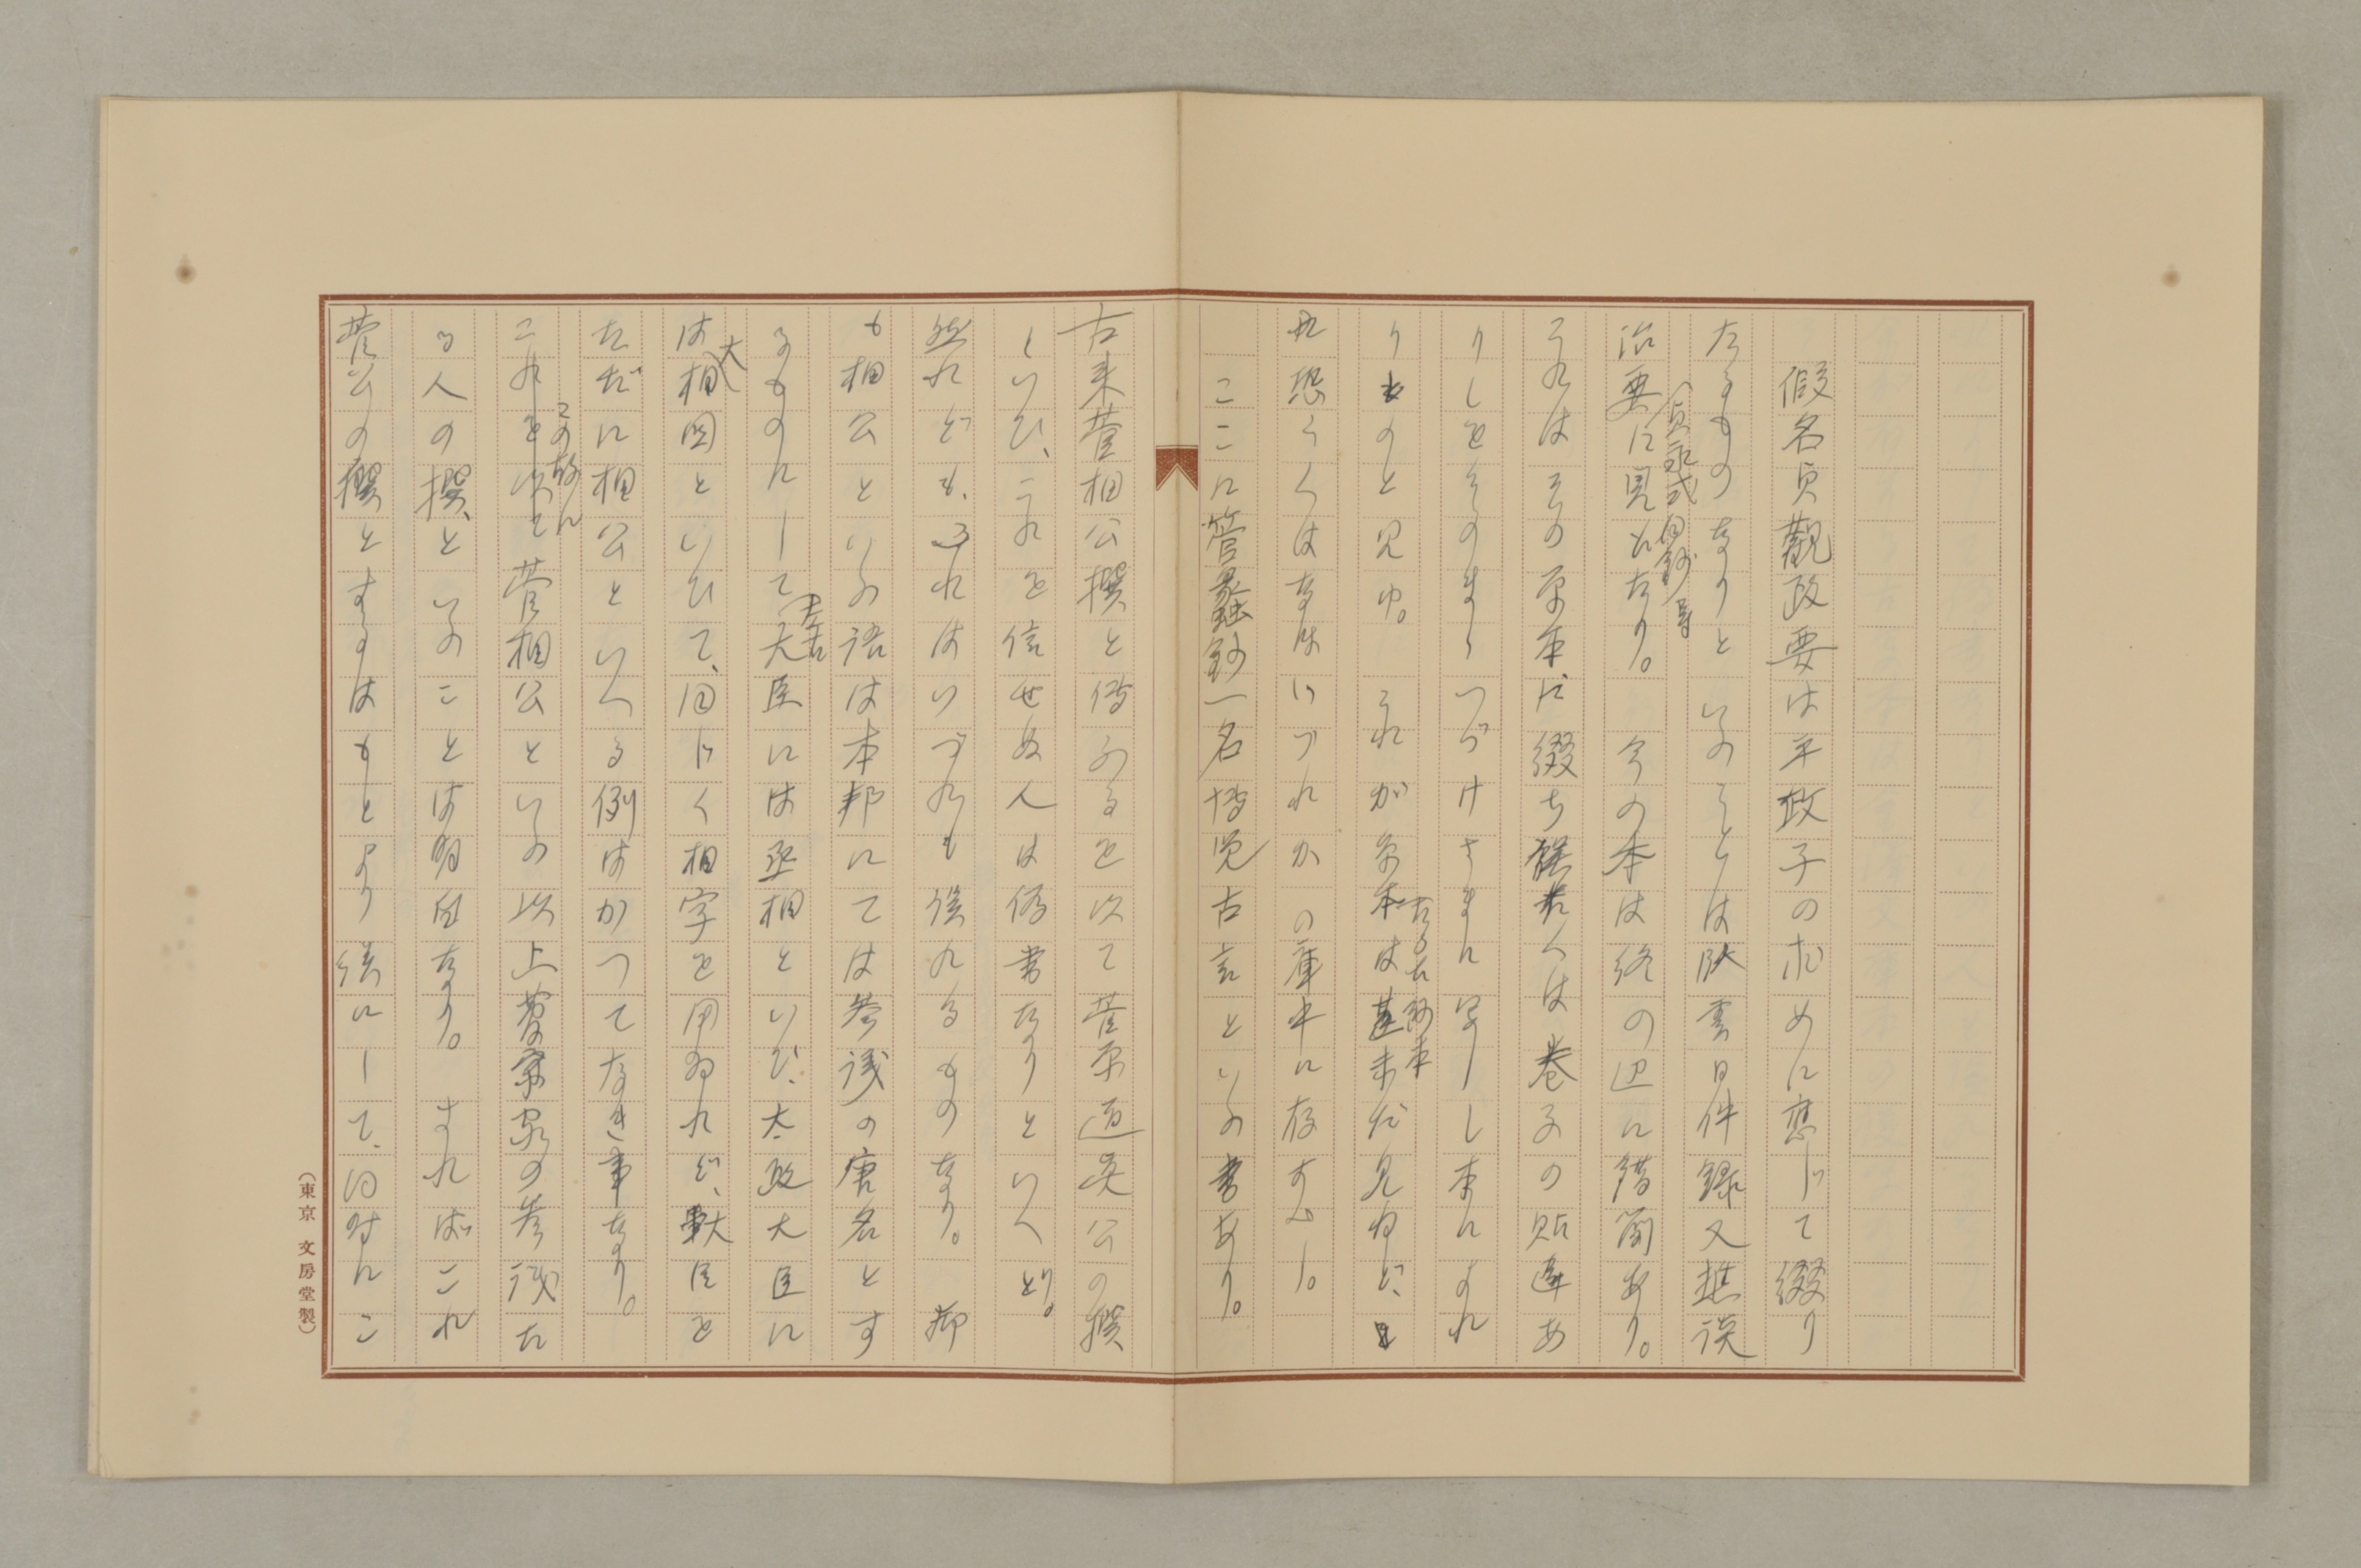 假名貞觀政要は平政子の求めに應じて綴り
たるものなりといふことは臥雲日件録又樵談
治要に見えたり。 今の本は終の辺に錯簡あり。
(貞永式目鈔等
こはその原本に綴ち 又は巻子の貼違あ
りしをそのまゝつづけさまに写しし本によれ
りものと見ゆ。 これが原本は 未だ見ねど、
たる古鈔本
恐らくはなほいづれかの庫中に存すべし。
ここに管蠡鈔一名博覧古言といふ書あり。
古来菅相公撰と傳ふるを以て菅原道真公の撰
といひ、これを信ぜぬ人は偽書なりといへり。
然れども、これはいづれも誤れるものなり。 抑
も相公といふ語は本邦にては参議の唐名とす
るものにして大臣には丞相といひ、太政大臣に
左右
は相國といひて、同じく相字を用ゐれど、大臣を
大
ただに相公といへる例はかつてなき事なり。
この故に
これを以て菅相公といふ以上菅家の参議た
る人の撰、といふことは明白なり。 さればこれ
菅公の撰とするはもとより誤にして、同時にこ
(東京 文房堂製)